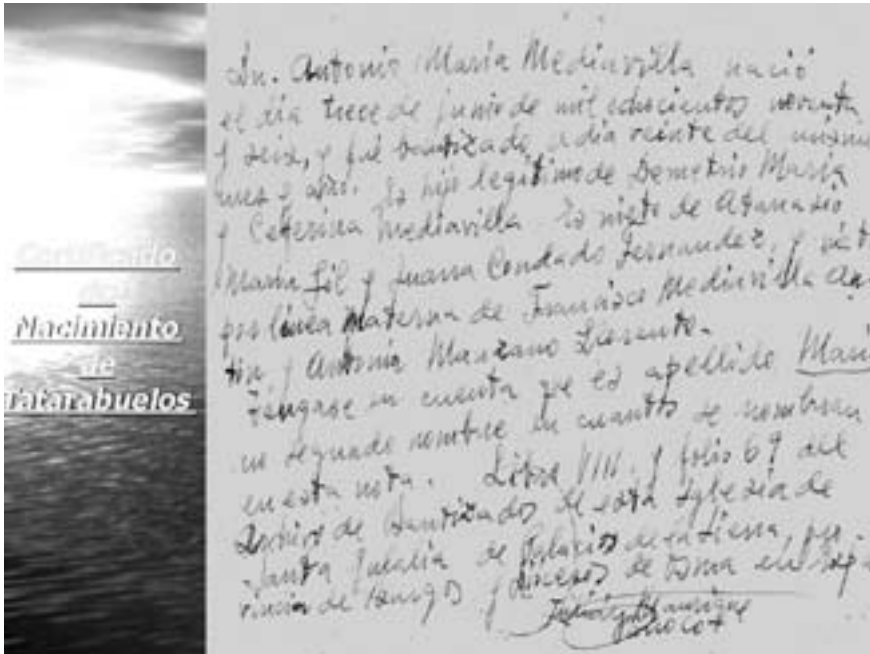 Certificado
de
Nacimiento
de
Tatarabuelos
Dn. Antonio María Mediavilla nació
el dia trece de junio de mil ochocientos noventa
y seis, y fué bautizado, a dia veinte del mismo
mes y año. Es hijo legítimo de Demetrio María
y Ceferina Mediavilla. Es nieto de Atanasio
María Gil y Juana Condado Fernandez, y
por línea materna de Francisco Mediavilla
y Antonia Manzano
Tengase en cuenta que es apellido
no segundo nombre en cuantos se nombran
en esta nota. Libro VIII. y folio 69 del
Archivo de Bautizados de esta Iglesia de
Santa Eulalia de Palacios de la Sierra, pro-
vincia de Burgos y Diócesis de Osma
Manrique